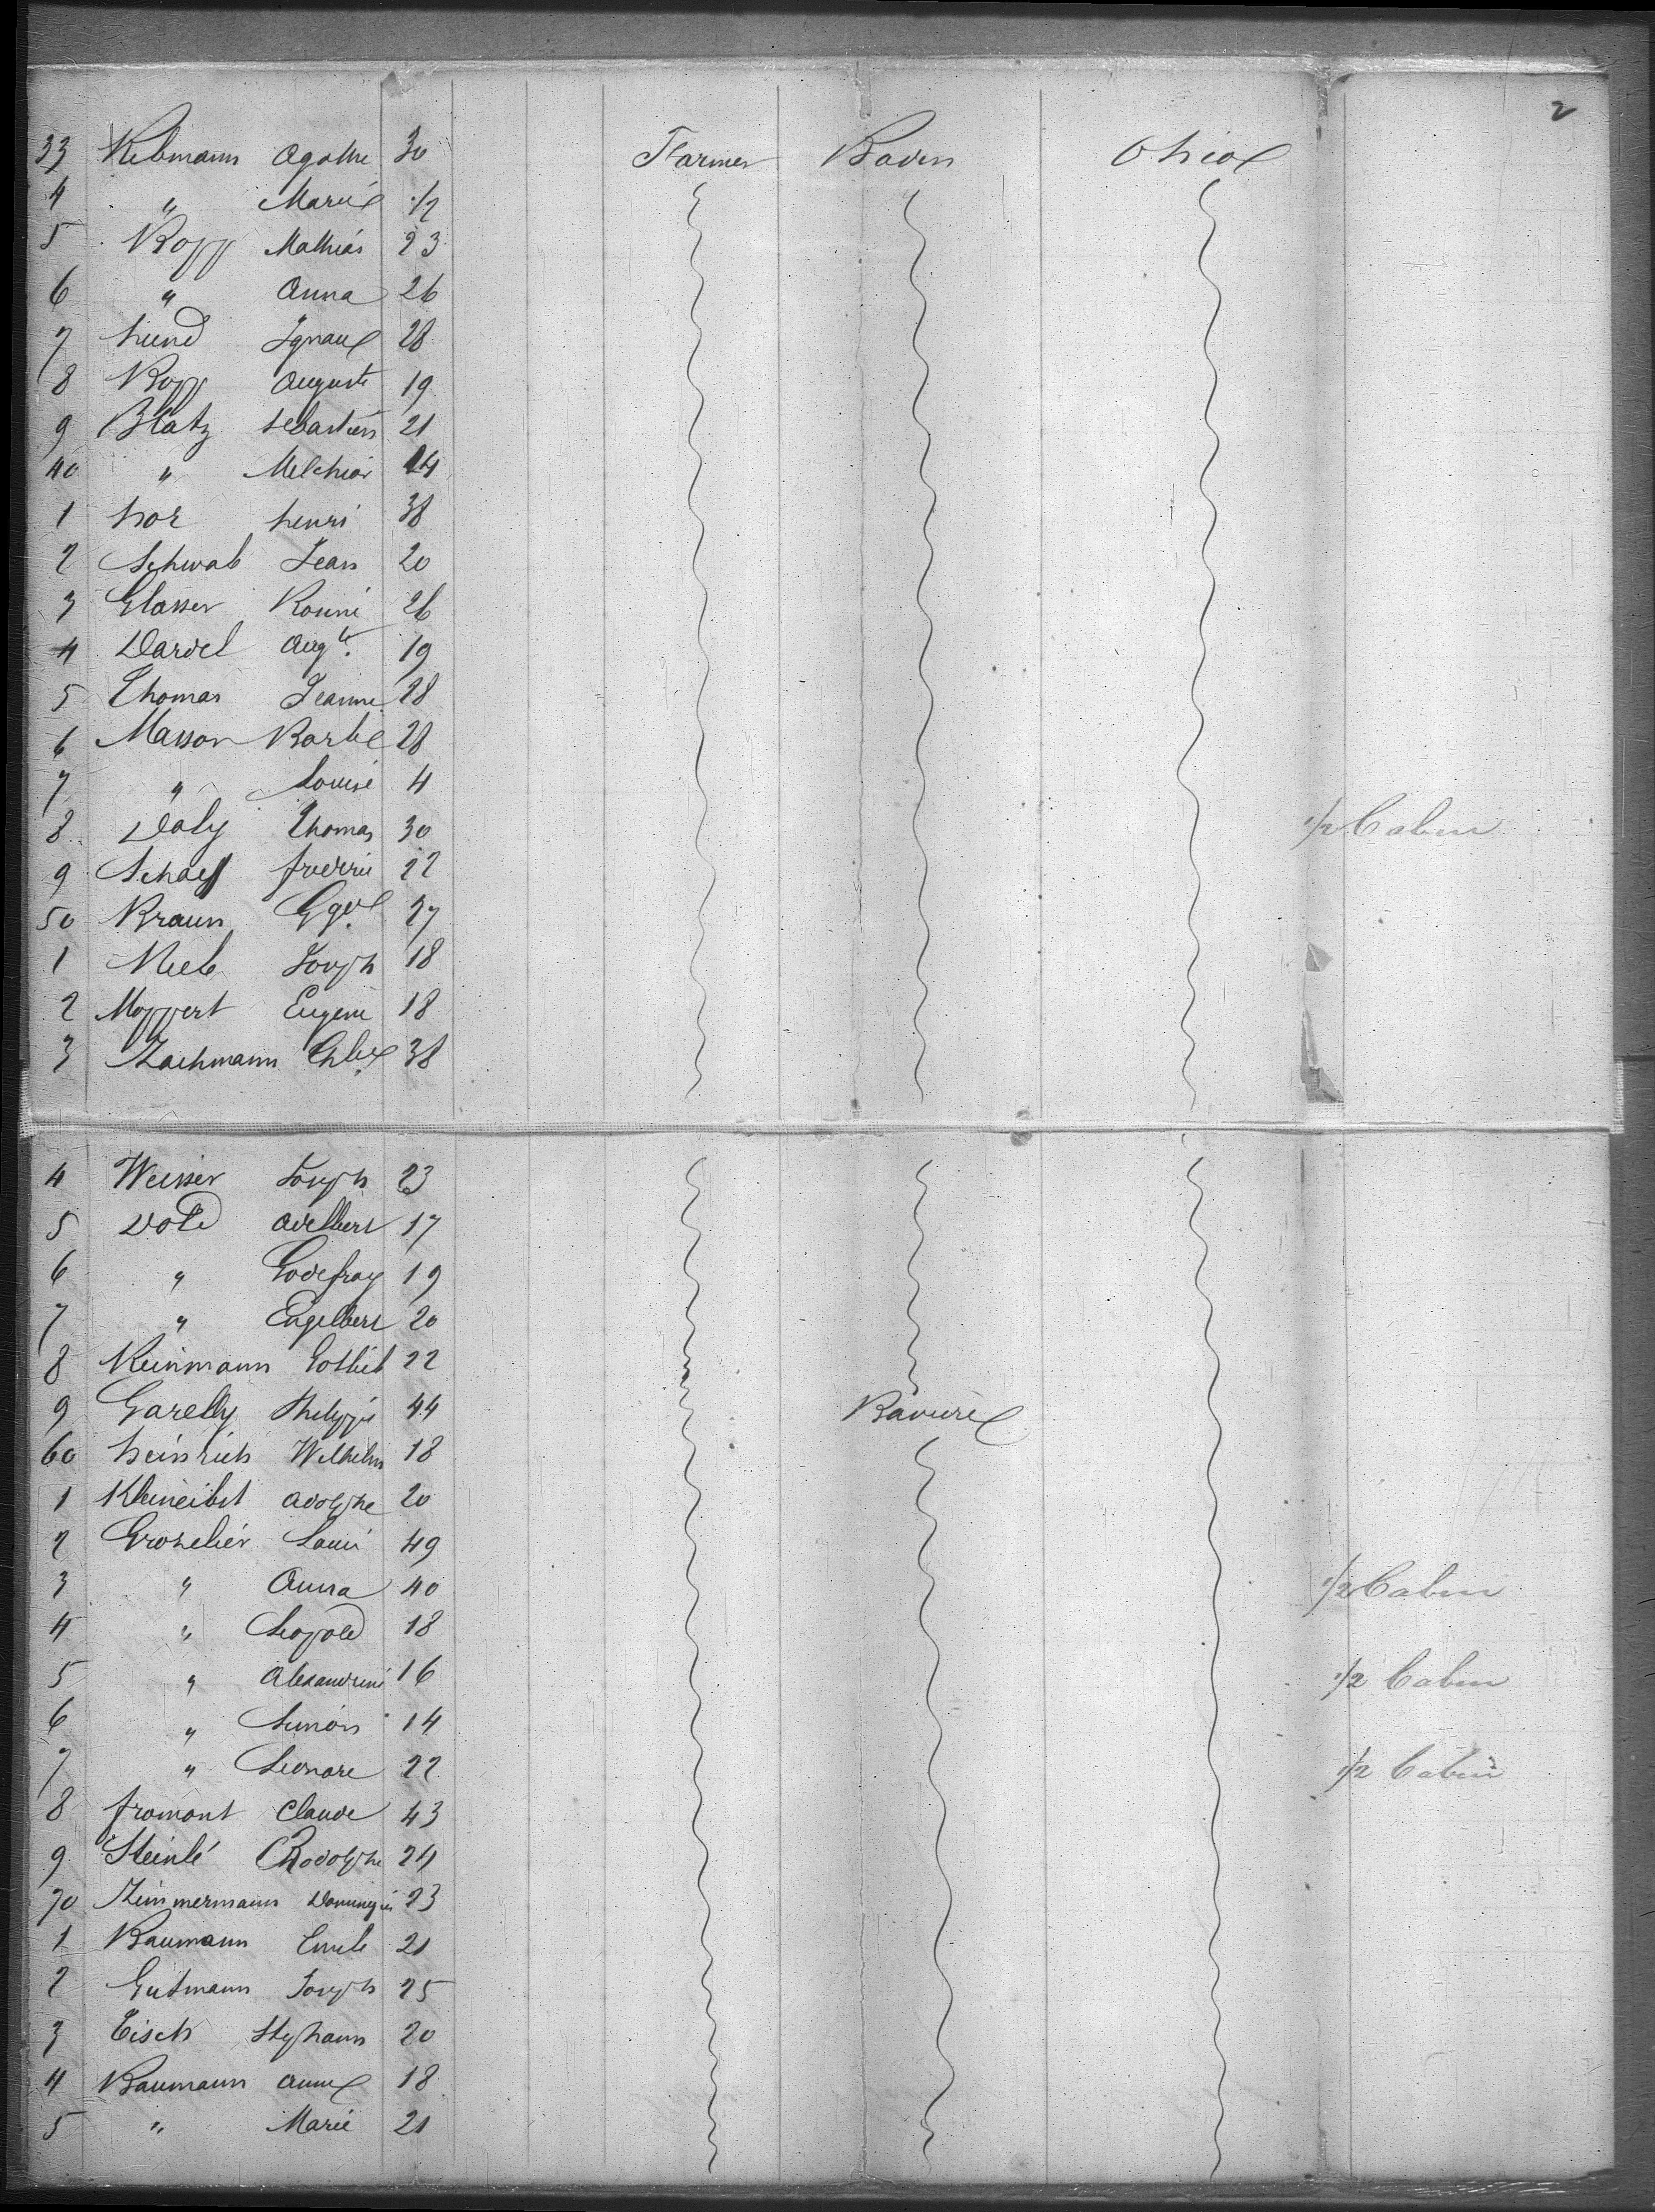 2
33 Rebmann Agathe 30 Farmer Baden Ohio
4 " Marie 1/2
5 Kopp Mathias 23
6 " Anna 26
7 hund Ignace 28
8 Kopp Auguste 19
9 Blatz Sebastien 21
40 " Melchior 14
1 hor henri 38
2 Schwab Jean 20
3 Glasser 26
4 Dardel Augte. 19
5 Thomas Jeanne 28
6 Masson Barbe 28
7 " Louise 4
8 Daly Thomas 30 1/2 Cabin
9 frederic 22
50 Braun Gge. 27
1 Joseph 18
2 Moppert Eugene 18
3 Zachmann 38
4 Weisser Joseph 23
5 Dold Adelbert 17
6 " Godefroy 19
7 " Engelbert 20
8 Reinmann Gottlieb 22
9 Garelly Philippe 44 Baviere
60 heinrich Wilhelm 18
1 Adolphe 20
2 Grozelier Louis 49
3 " Anna 40 1/2 Cabin
4 " Leopold 18
5 " Alexandrine 16 1/2 Cabin
6 " Simon 14
7 " Leonore 22 1/2 Cabin
8 fromont Claude 43
9 Steinlé Rodolphe 24
70 Zimmermann Dominique 23
1 Baumann Emile 21
2 Gutmann Joseph 25
3 Eisch Stephann 20
4 Baumann Anne 18
5 " Marie 21